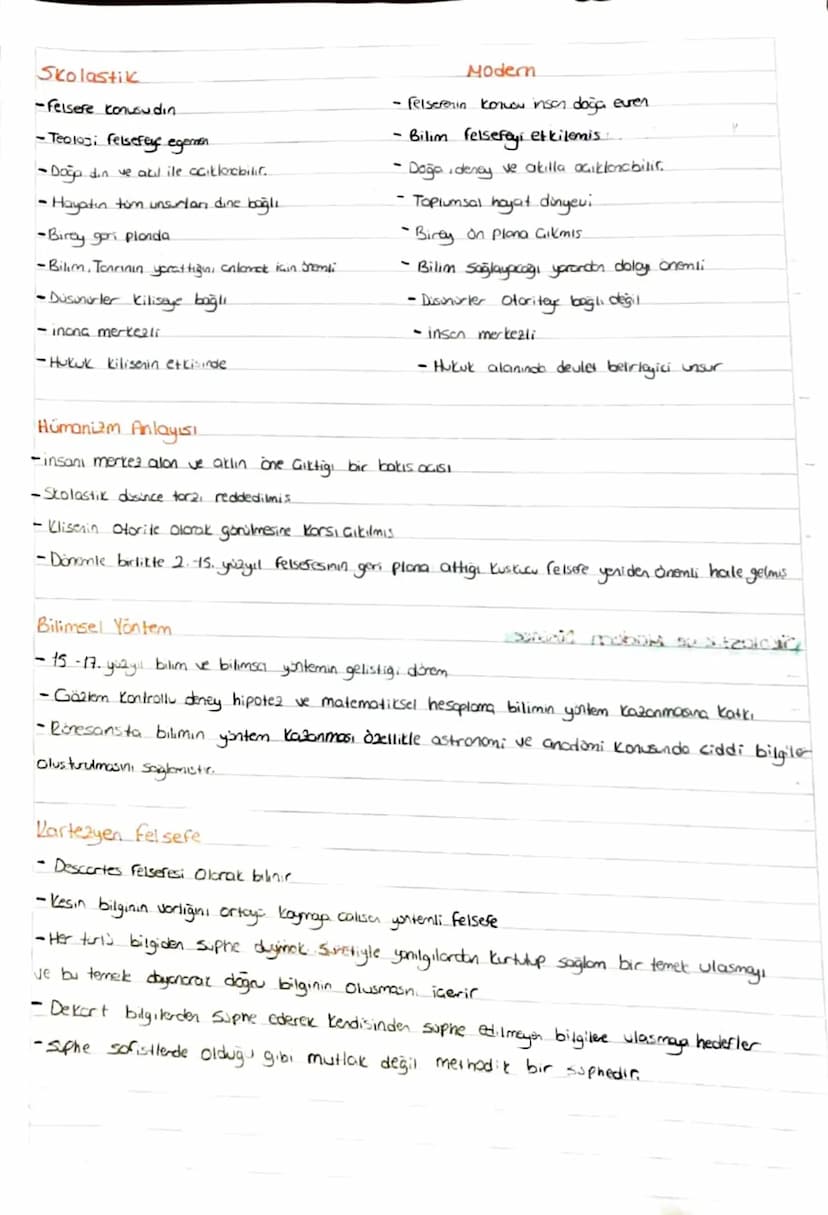 Skolastik
- felsefe konusu din
- Teoloji felsefeye egemen
- Doğa din ve akıl ile acıklanabilir.
- Hayatın tüm unsurları dine bağlı
- Birey geri planda
- Bilim, Tanrının yarattığını anlamak icin önemli
- Düsünürler kiliseye bağlı
- inanc merkezli
- Hukuk kilisenin etkisinde
Modern
- felsefenin konusu insan doğa evren
- Bilim felsefeyi etkilemis
- Doğa, deney ve akılla acıklanabilir.
- Toplumsal hayat dünyevi
- Birey ön plana cıkmıs
- Bilim sağlayacağı yarardan dolayı önemli
- Düsünürler otoriteye bağlı değil
- insan merkezli
- Hukuk alanında devlet belirleyici unsur
Hümanizm Anlayısı
- insanı merkez alan ve aklın öne cıktığı bir bakıs acısı
- Skolastik düsünce tarzı reddedilmis
- Klisenin otorite olarak görülmesine karsı cıkılmıs
- Dönemle birlikte 2.-15. yüzyıl felsefesinin geri plana attığı kuskucu felsefe yeniden önemli hale gelmis
Bilimsel Yöntem
- 15 -17. yüzyıl bilim ve bilimsel yöntemin gelistiği dönem
- Gözlem kontrollu deney hipotez ve matematiksel hesaplama bilimin yöntem kazanmasına katkı
- Rönesansta bilimin yöntem kazanması özellikle astronomi ve anadomi konusunda ciddi bilgiler
olusturulmasını sağlamıstır.
Kartezyen felsefe
- Descartes felsefesi olarak bilinir
- Kesin bilginin varlığını ortaya koymaya calısan yöntemli felsefe
- Her türlü bilgiden süphe duymak suretiyle yanılgılardan kurtulup sağlam bir temele ulasmayı
ve bu temele dayanarak doğru bilginin olusmasını icerir
- Dekart bilgilerden süphe ederek kendisinden süphe edilmeyen bilgilere ulasmayı hedefler
- süphe sofistlerde olduğu gibi mutlak değil methodik bir süphedir.